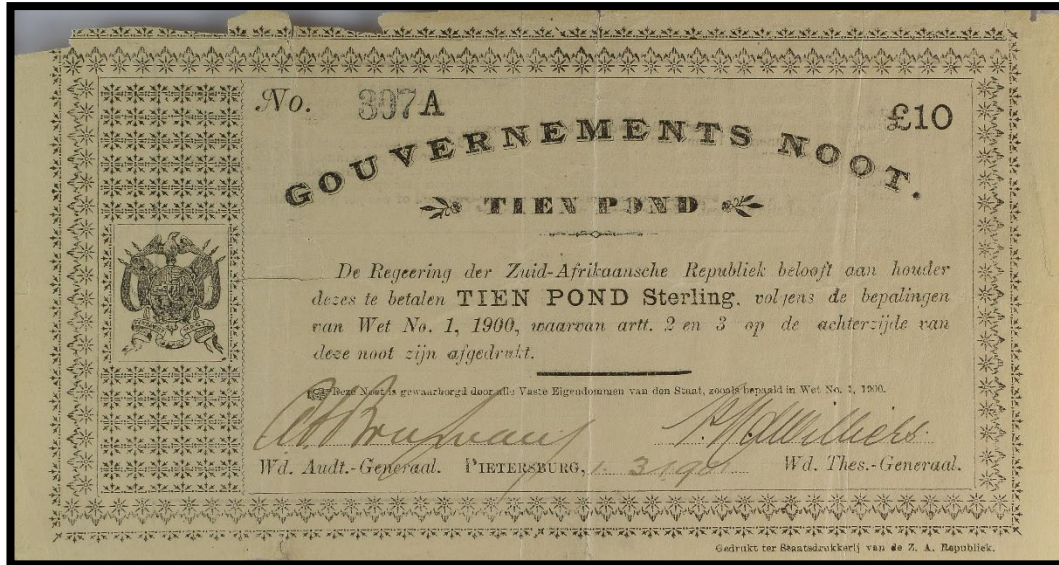 No. 307A £10
GOUVERNEMENTS NOOT.
TIEN POND
De Regeering der Zuid-Afrikaansche Republiek belooft aan houder
dezes te betalen TIEN POND Sterling, volgens de bepalingen
van Wet No. 1, 1900, waarvan artt. 2 en 3 op de achterzijde van
deze noot zijn afgedrukt.
Deze Noot is gewaarborgd door alle Vaste Eigendommen van den Staat, zooals bepaald in Wet No. 1, 1900.
Wd. Audt.-Generaal. PIETERSBURG, 1.3.1901 Wd. Thes.-Generaal.
Gedrukt ter Staatsdrukkerij van de Z. A. Republiek.